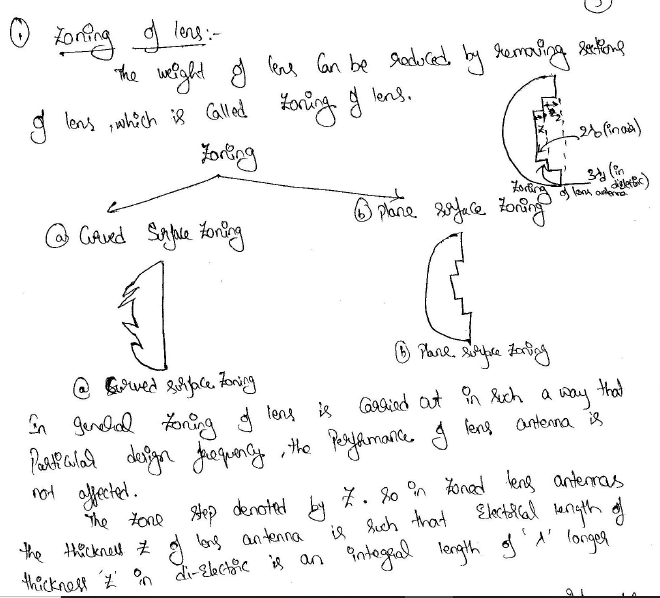 Zoning of lens:-
The weight of lens can be reduced by removing sections
of lens, which is called zoning of lens.
Zoning
2λ0 (in air)
3λd (in dielectric)
Zoning of lens antenna
(a) Curved Surface Zoning
(b) Plane surface zoning
(b) Plane surface zoning
(a) Curved surface zoning
In general zoning of lens is carried out in such a way that
Particular design frequency, the Performance of lens antenna is
not affected.
The zone step denoted by Z. So in zoned lens antennas
the thickness Z of lens antenna is such that Electrical length of
thickness 'Z' in di-Electric is an integral length of 'λ' longer